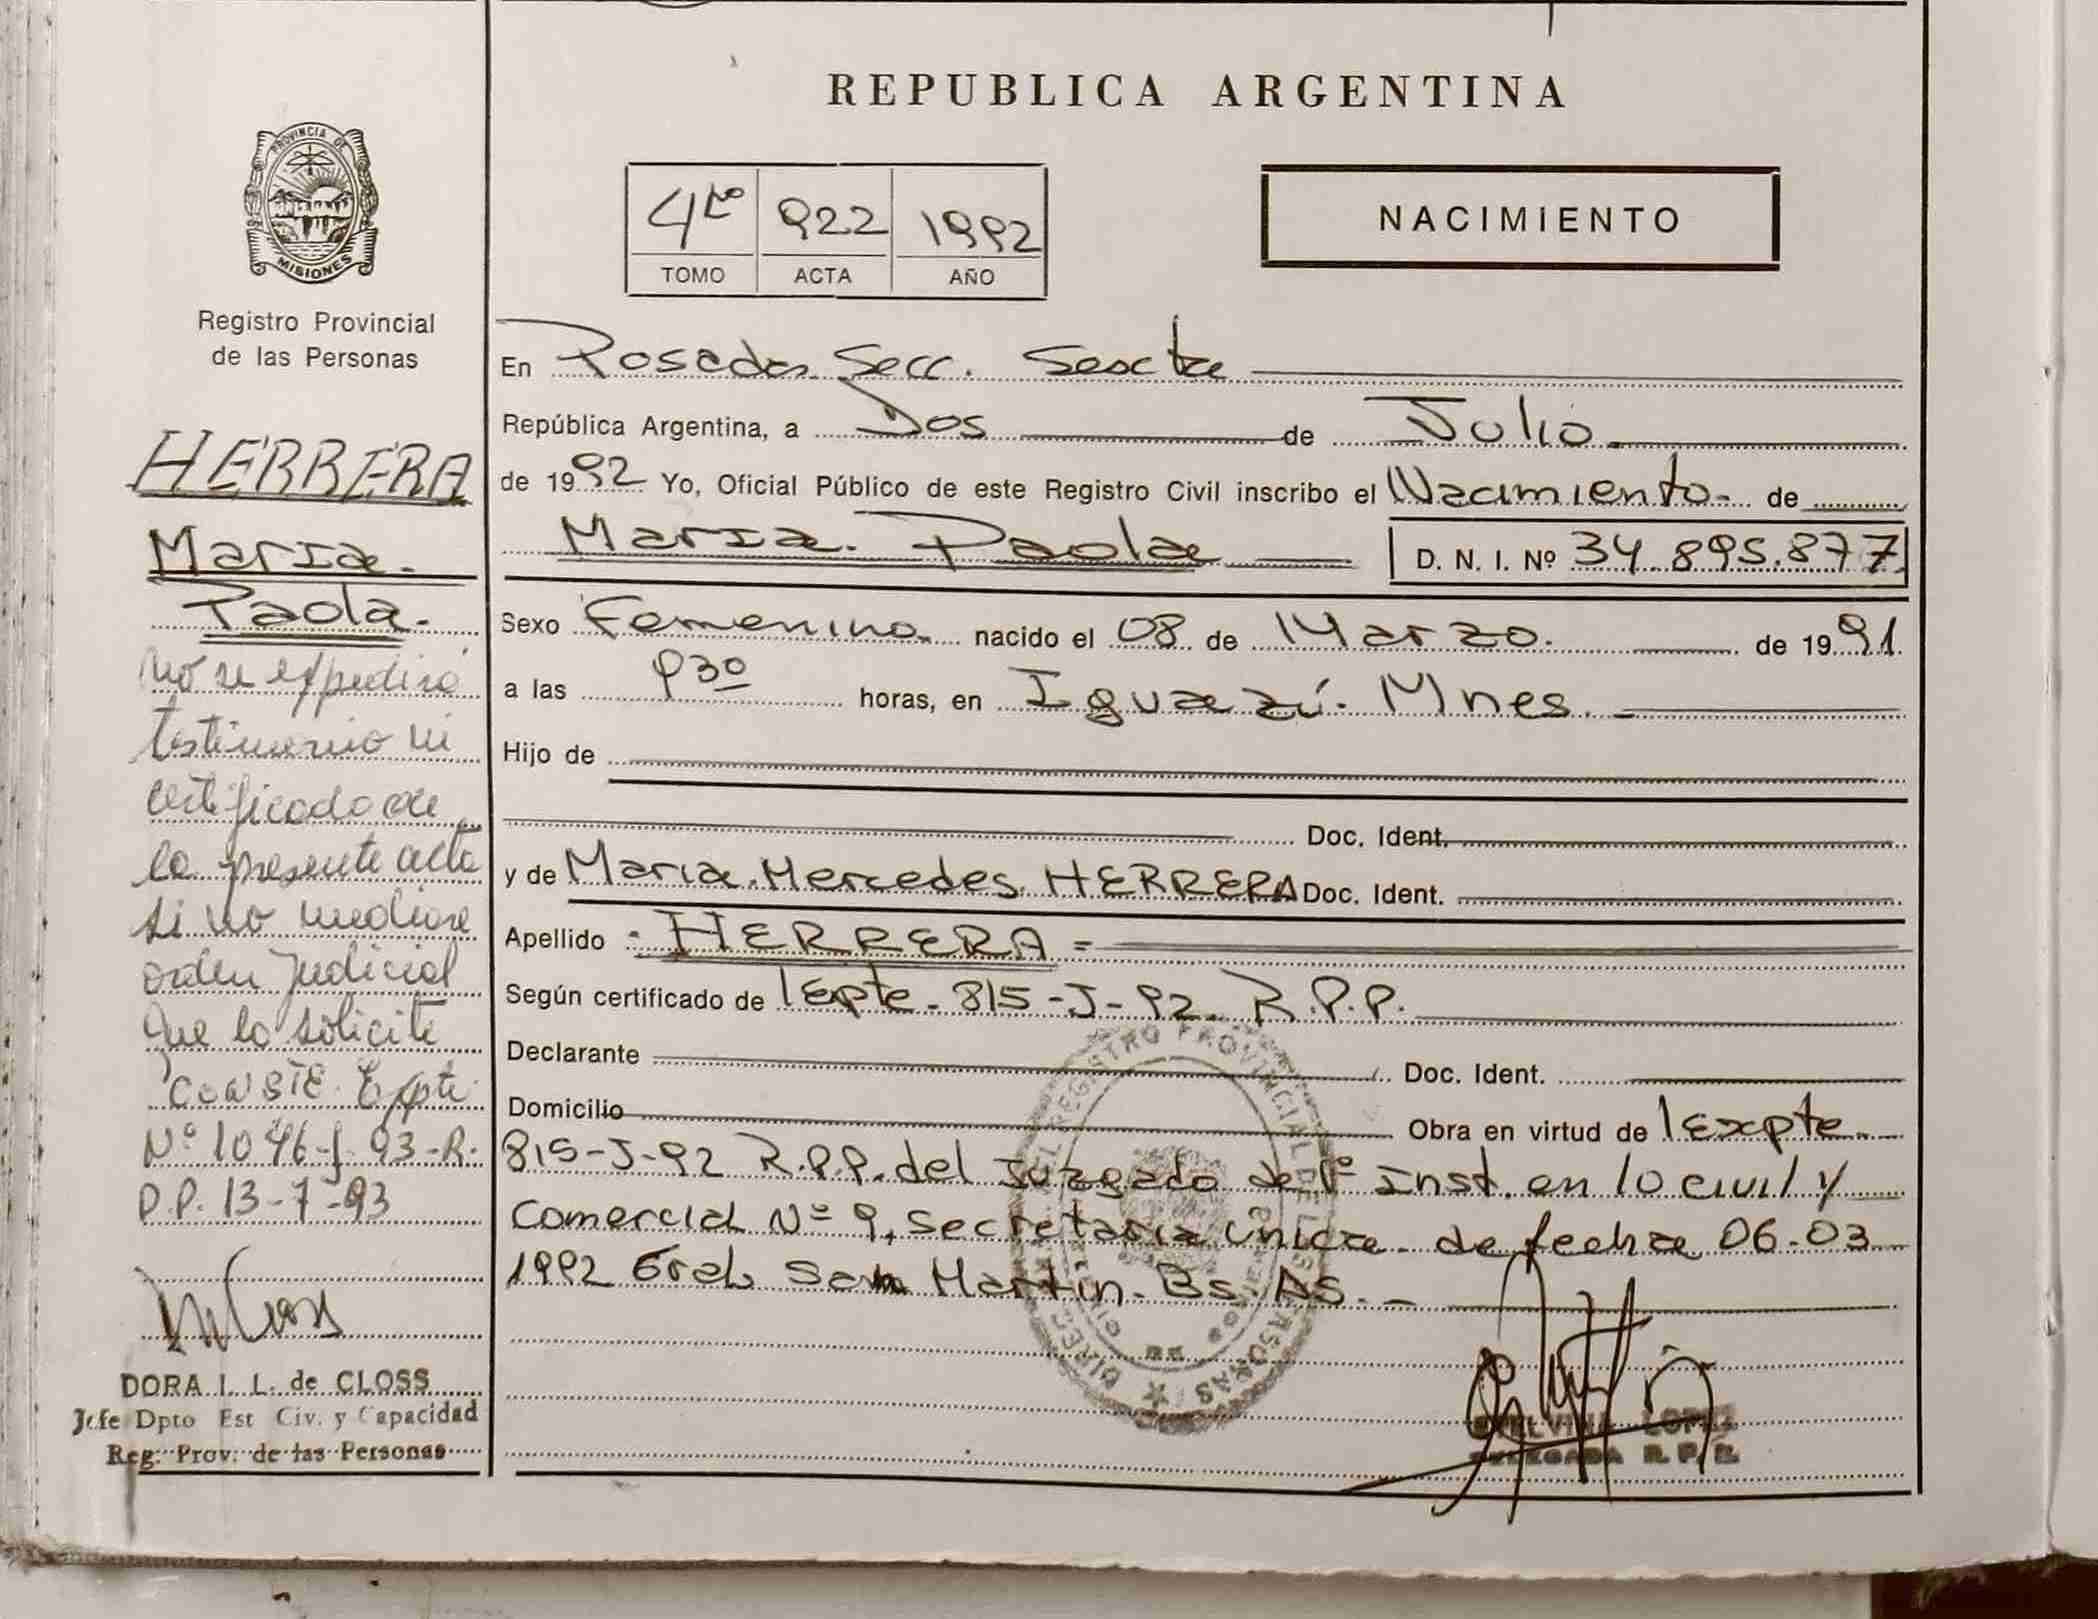 REPUBLICA ARGENTINA
PROVINCIA DE
MISIONES
Registro Provincial
de las Personas
4to 922 1992
TOMO ACTA AÑO
NACIMIENTO
HERRERA
Maria.
Paola.
No se expedirá
testimonio ni
certificado de
la presente acta
si no mediare
orden judicial
que lo solicite
CONSTE. Expte
Nº 1046-J-93-R.
P.P. 13-7-93
DORA I. L. de CLOSS
Jefe Dpto Est Civ. y Capacidad
Reg. Prov. de las Personas
En Posadas Secc. Sexta
República Argentina, a Dos de Julio
de 1992 Yo, Oficial Público de este Registro Civil inscribo el Nacimiento de
Maria. Paola D. N. I. Nº 34.895.877
Sexo Femenino. nacido el 08 de Marzo. de 1991.
a las 930 horas, en Iguazú. Mnes.
Hijo de
Doc. Ident.
y de Maria. Mercedes. HERRERA Doc. Ident.
Apellido HERRERA =
Según certificado de Expte. 815-J-92. R.P.P.
Declarante Doc. Ident.
Domicilio Obra en virtud de Expte.
815-J-92 R.P.P. del Juzgado de 1º Inst. en lo civil y
Comercial Nº 9, secretaria única de fecha 06-03
1992 Gral. San Martín. Bs. As. _
REGISTRO PROVINCIAL DE LAS PERSONAS
LOPEZ
DELEGADA R. P. P.